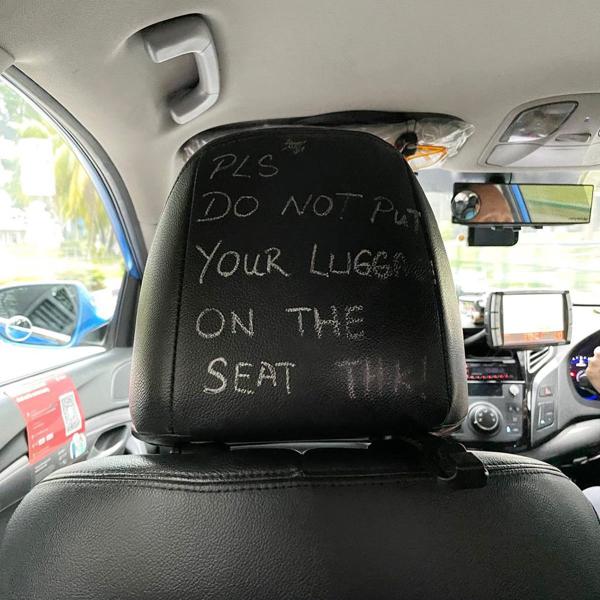 PLS
DO NOT PUT
YOUR LUGGA
ON THE
SEAT THK!